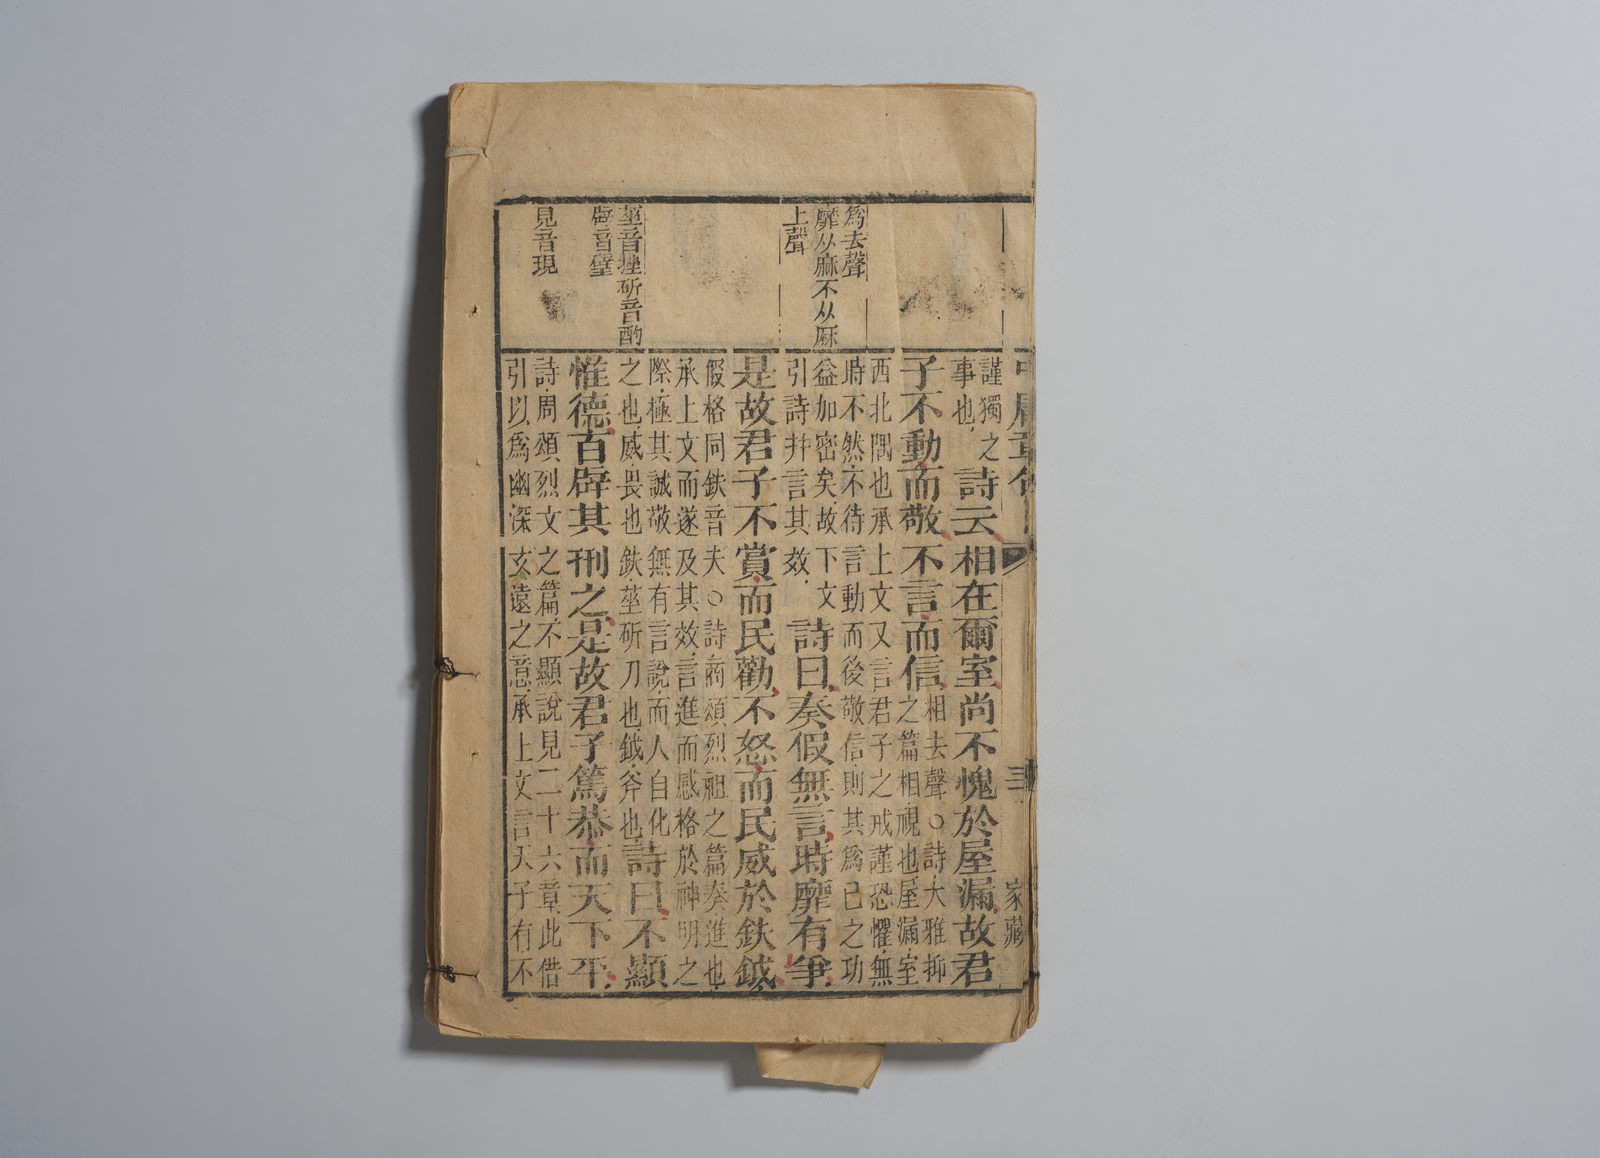 爲去聲
靡从麻不从厤
上聲
莝音挫斫音酌
辟音璧
見音現
中庸章句
家藏
謹獨之
事也
詩云相在爾室尚不愧於屋漏故君
子不動而敬不言而信
相去聲○詩大雅抑
之篇相視也屋漏室
西北隅也承上文又言君子之戒謹恐懼無
時不然不待言動而後敬信則其爲己之功
益加密矣故下文
引詩并言其效
詩曰奏假無言時靡有爭
是故君子不賞而民勸不怒而民威於鈇鉞
假格同鈇音夫○詩商頌烈祖之篇奏進也
承上文而遂及其效言進而感格於神明之
際極其誠敬無有言說而人自化
之也威畏也鈇莝斫刀也鉞斧也
詩曰不顯
惟德百辟其刑之是故君子篤恭而天下平
詩周頌烈文之篇不顯說見二十六章此借
引以爲幽深玄遠之意承上文言天子有不